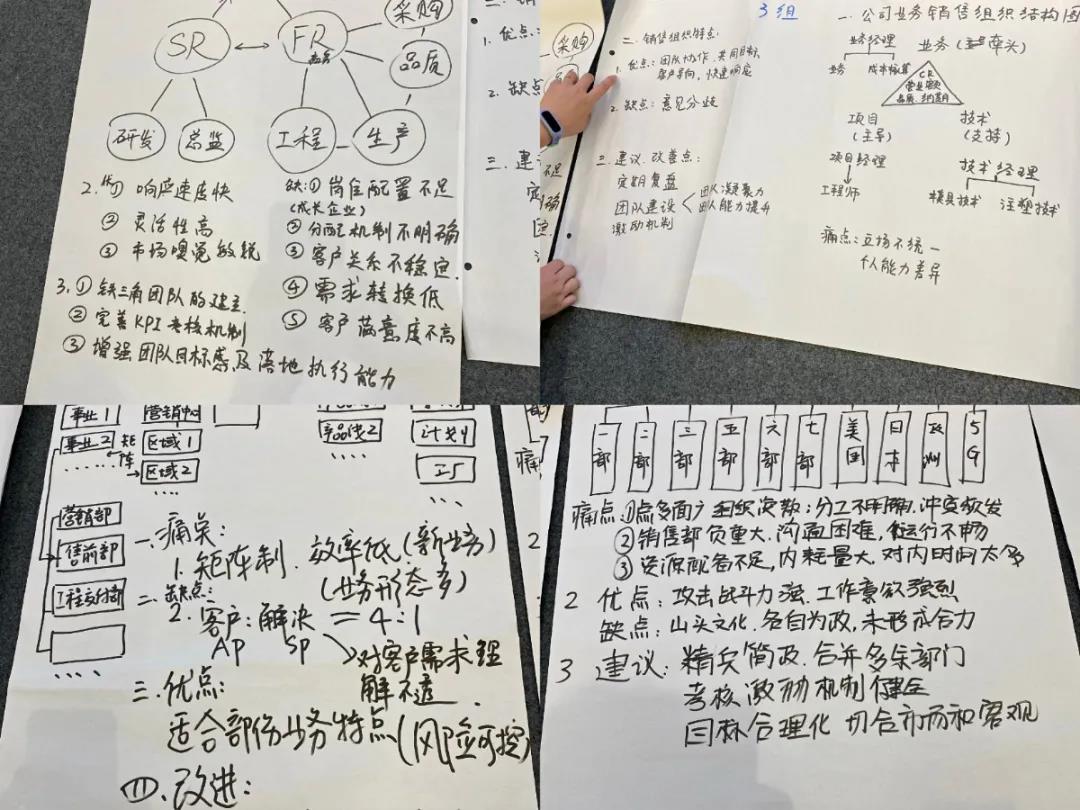 采购
SR
FR
品质
研发
总监
工程
生产
2. 优① 响应速度快
② 灵活性高
③ 市场嗅觉敏锐
缺:① 岗位配置不足
(成长企业)
② 分配机制不明确
③ 客户关系不稳定.
④ 需求转换低
⑤ 客户满意度不高
3. ① 铁三角团队的建立.
② 完善KPI考核机制
③ 增强团队目标感及落地执行能力
1. 优点:
2. 缺
三. 建
采购
二. 销售组织特点:
1. 优点: 团队协作. 共同目标.
客户导向, 快速响应
2. 缺点: 意见分歧
三. 建议. 改善点:
定期复盘
团队建设
团队凝聚力
团队能力提升
激励机制
3组
一. 公司业务销售组织结构图
业务经理
业务
成本核算
业务(牵头)
CR
项目
(主导)
技术
(支持)
项目经理
工程师
技术经理
模具技术
注塑技术
痛点: 立场不统一
个人能力差异
事业1
事业2
矩阵
区域1
区域2
产品线2
计划
工厂
营销部
售前部
工程交付部
一. 痛点:
1. 矩阵制. 效率低(新业务)
(业务形态多)
二. 缺点:
2. 客户: 解决 = 4:1
AP SP
对客户需求理
解不透.
三. 优点:
适合部份业务特点(风险可控)
四. 改进:
一部
二部
三部
五部
六部
七部
美国
日本
欧洲
5G
痛点 ① 点多面广 组织次数; 分工不明确. 冲突频发
② 销售部负重大. 沟通困难, 运行不畅
③ 资源配备不足, 内耗量大. 对内时间太多
2 优点: 攻击战斗力强. 工作意欲强烈
缺点: 山头文化. 各自为政, 未形成合力
3 建议: 精兵简政. 合并多余部门
考核激励机制健全
目标合理化 切合市场和客观